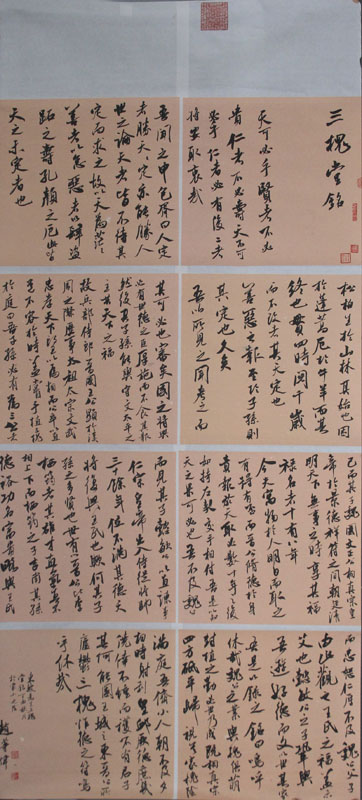 三槐堂銘
天可必乎賢者不必
貴仁者不必壽天不可
必乎仁者必有後二者
將安取衷哉
吾聞之申包胥曰人定
者勝天天定亦能勝人
世之論天者皆不待其
定而求之故以天為茫茫
善者以怠惡者以肆盜
跖之壽孔顏之厄此皆
天之未定者也
松柏生於山林其始也困
於蓬蒿厄於牛羊而其
終也貫四時閱千歲
而不改者其天定也
善惡之報至於子孫則
其定也久矣
吾以所見之聞考之而
其可必也審矣國之將興
必有世德之臣厚施而不食其報
然後其子孫能與守文太平之
主共天下之福
故兵部侍郎晉國王公顯於漢
周之際歷事太祖太宗文武
忠孝天下望以為相而公卒以直
道不容於時蓋嘗手植三槐
於庭曰吾子孫必有為三公者
已而其子魏國文正公相真宗皇
帝於景德祥符之間朝廷清
明天下無事之時享其福
祿名者十有八年
今夫寓物於人明日而取之
有得有否而晉公修德於身
責報於天取必數十年之後
如持左契交手相付吾是以知
天之果可必也吾不及見魏公
而見其子懿敏公以直諫事
仁宗皇帝出入侍從將帥
三十餘年位不滿其德天
將復興王氏也歟何其子
孫之多賢也世有以晉公比李
栖筠者其雄才直氣真不
相上下而栖筠之子吉甫其孫
德裕功名富貴略與王氏
而忠恕仁厚不及魏公父子
由此觀之王氏之福蓋未
艾也懿敏公之子鞏與
吾遊好德而文以世其家
吾是以錄之銘曰嗚呼
休哉魏公之業與槐俱萌
封植之勤必世乃成既相真宗
四方砥平歸視其家槐陰
滿庭吾儕小人朝不及夕
相時射利皇卹厥德庶幾
僥倖不種而獲不有君子
其何能國王城之東晉公所
廬鬱鬱三槐惟德之符嗚
呼休哉